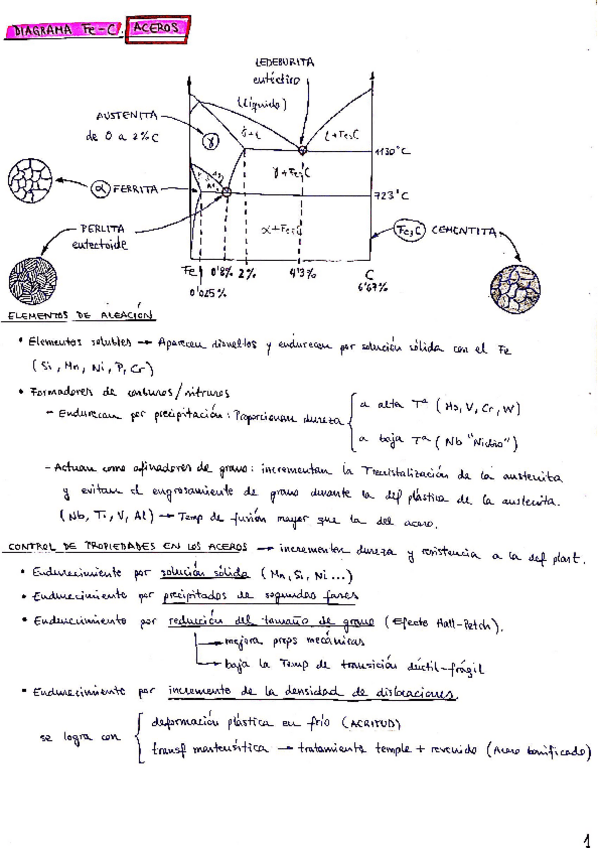 DIAGRAMA Fe-C. ACEROS
LEDEBURITA
eutéctico
(líquido)
AUSTENITA
de 0 a 2% C
γ
γ+L
L+Fe₃C
1130°C
γ+Fe₃C
α FERRITA
723°C
PERLITA
eutectoide
α+Fe₃C
Fe₃C CEMENTITA
Fe 0'8% 2% 4'3% C
0'025% 6'67%
ELEMENTOS DE ALEACIÓN
• Elementos solubles → Aparecen disueltos y endurecen por solución sólida con el Fe
(Si, Mn, Ni, P, Cr)
• Formadores de carburos/nitruros
- Endurecen por precipitación: Proporcionan dureza
a alta Tª (Mo, V, Cr, W)
a baja Tª (Nb "Niobio")
- Actuan como afinadores de grano: incrementan la Trecristalización de la austenita
y evitan el engrosamiento de grano durante la def plástica de la austenita.
(Nb, Ti, V, Al) → Temp de fusión mayor que la del acero.
CONTROL DE PROPIEDADES EN LOS ACEROS → incrementar dureza y resistencia a la def plast.
• Endurecimiento por solución sólida (Mn, Si, Ni...)
• Endurecimiento por precipitados de segundas fases
• Endurecimiento por reducción del tamaño de grano (Efecto Hall-Petch).
→ mejora props mecánicas
→ baja la Temp de transición dúctil-frágil
• Endurecimiento por incremento de la densidad de dislocaciones.
se logra con
deformación plástica en frío (ACRITUD)
transf martensítica → tratamiento temple + revenido (Acero bonificado)
1